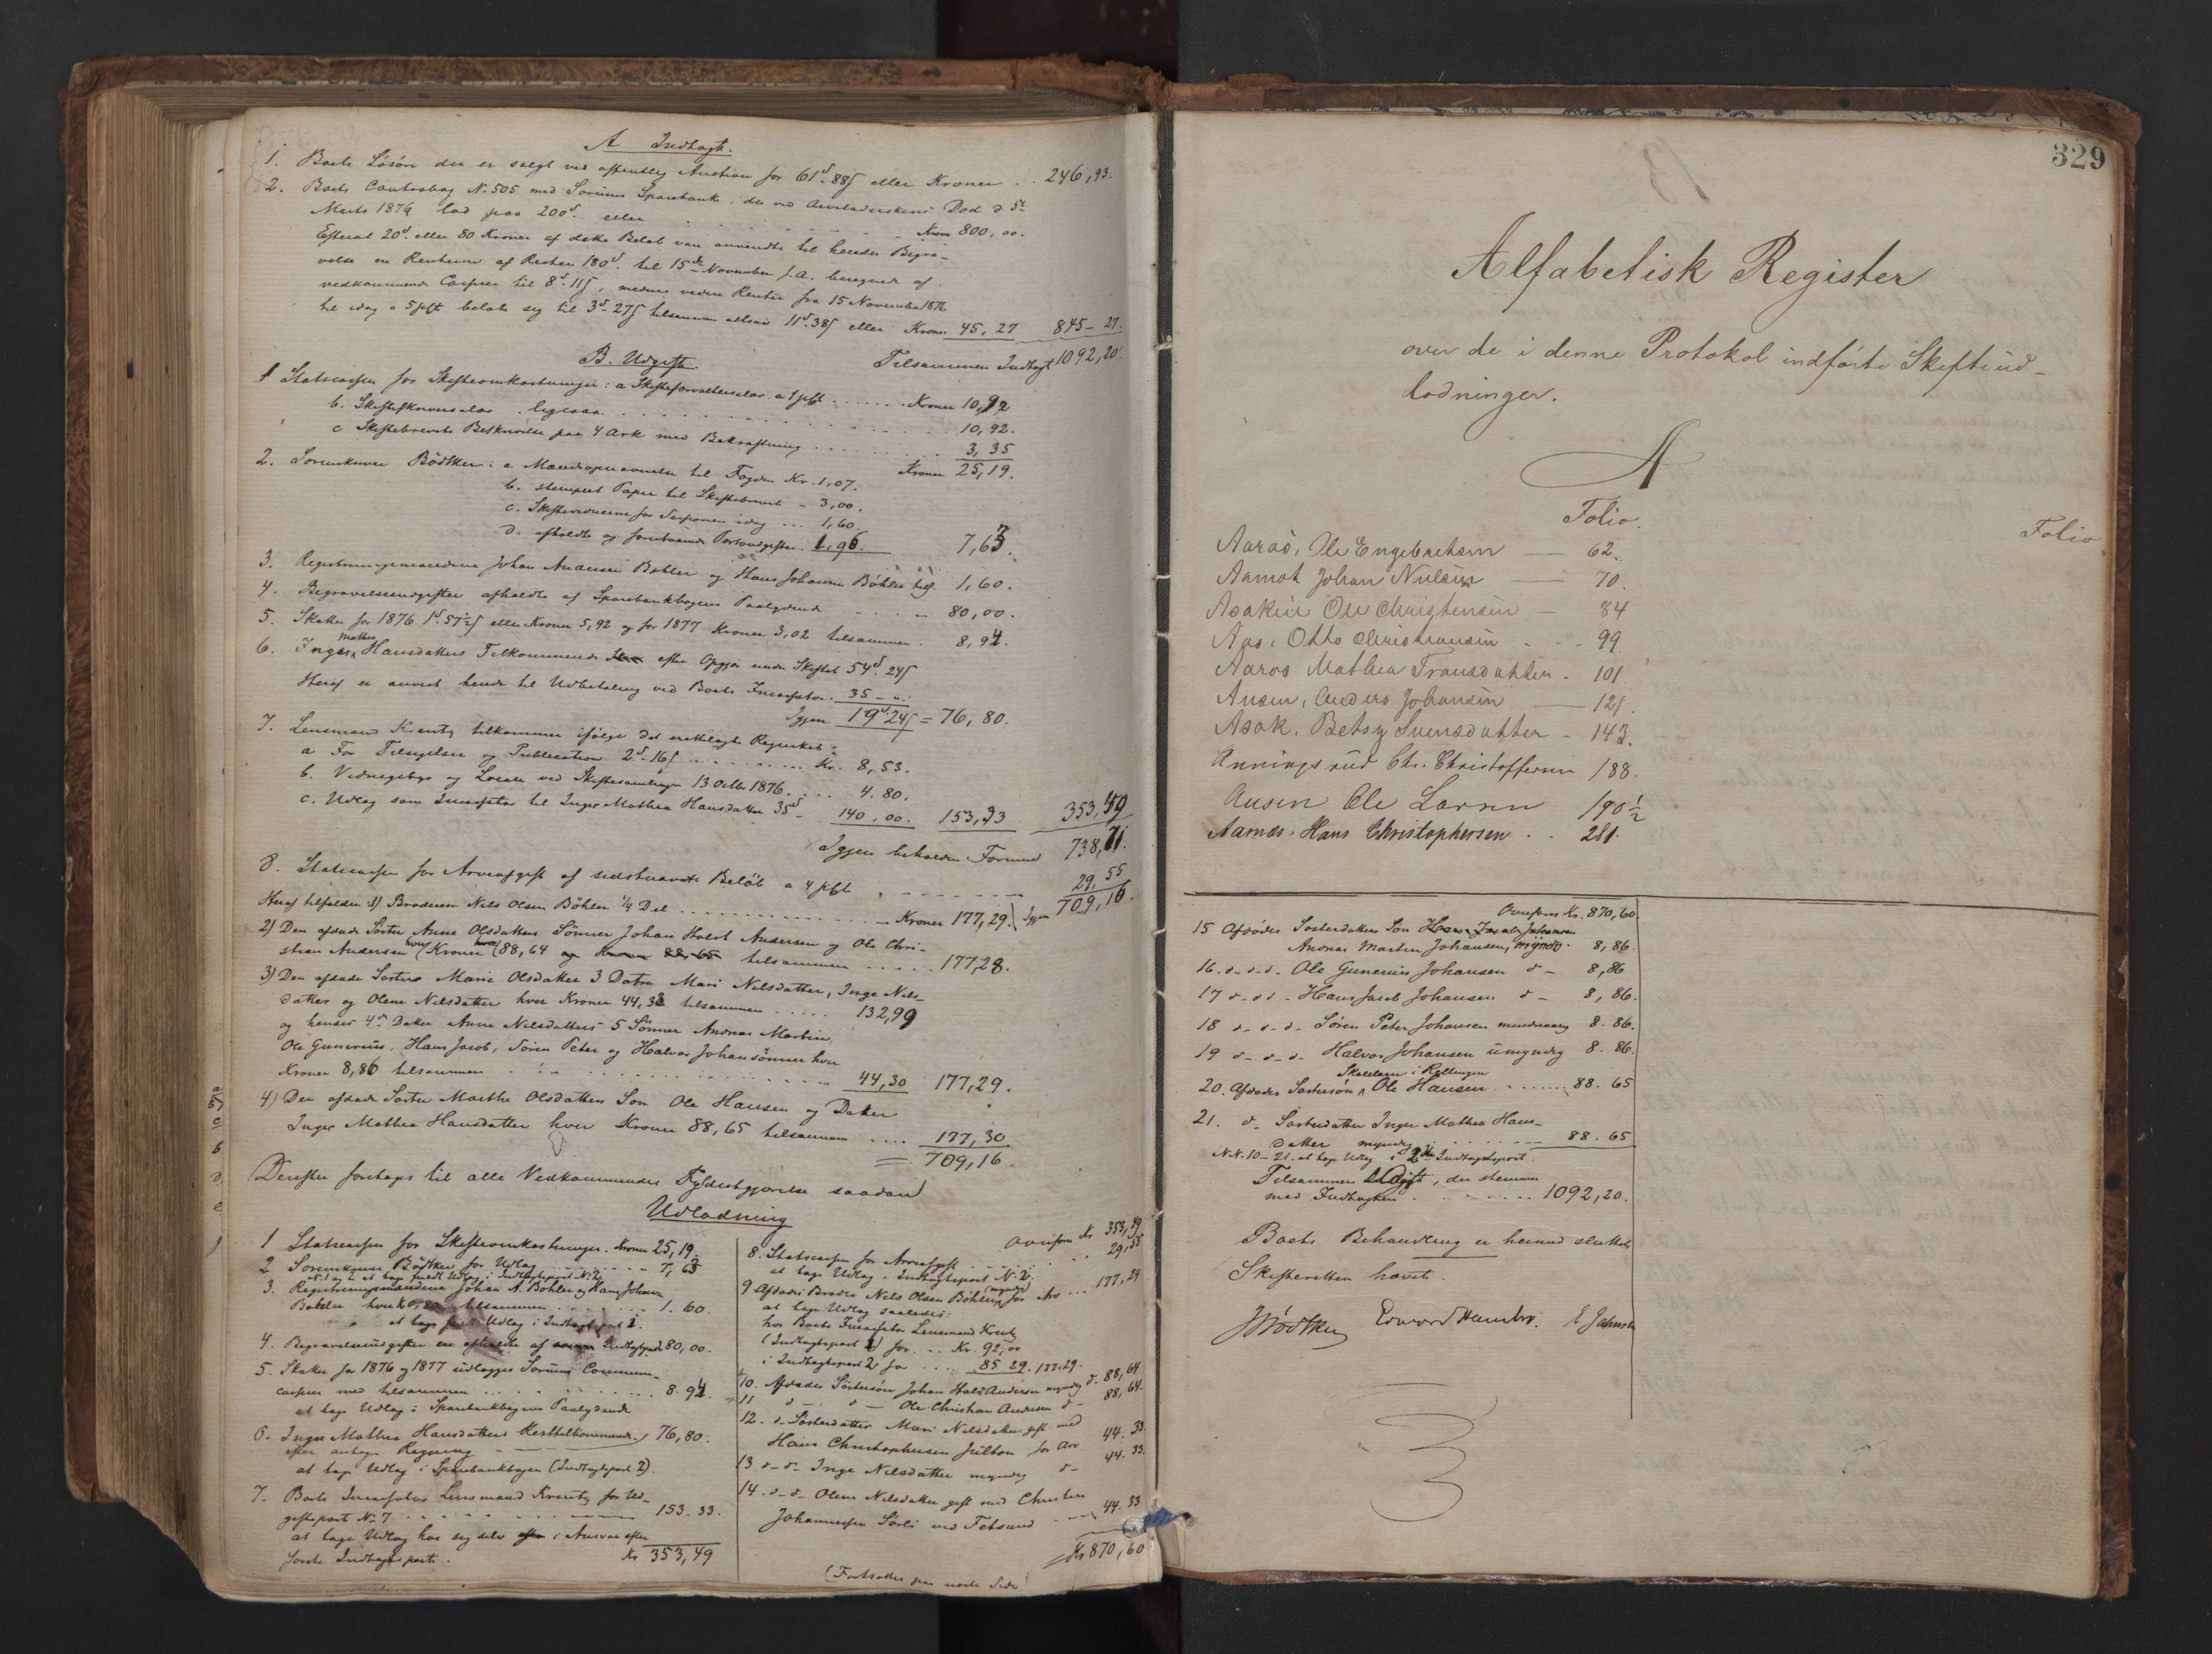 A Indtægt.
1. Boets Løsøre der er solgt ved offentlig Auction for 61d. 88s eller Kroner . . 246,93.
2. Boets Contrabog No. 505 med Sørums Sparebank, der ved Arveladerskens Død d. 5te
Marts 1876 lød paa 200d. eller . . . . Kron 800,00.
Efterat 20d. eller 80 Kroner af dette Beløb var anvendte til hendes Begra-
velse er Renterne af Resten 180d. til 15de November f.A. beregnet af
vedkommende Casserer til 8d. 11s, medens videre Renter fra 15 November 1876
til idag a 5 pCt beløbe sig til 3d. 27s tilsammen altsaa 11d. 38s eller Kroner 45,27 845-27.
Tilsammen Indtægt 1092,20.
B. Udgift.
1 Statscassen for Skifteomkostninger: a Skifteforvaltersalær a 1 pCt . . . . . . Kroner 10,92
b. Skifteskriversalær . ligesaa . . . . 10,92.
c Skiftebrevets Beskrivelse paa 4 Ark med Bekræftning . . . . 3,35
Kroner 25,19.
2. Sorenskriver Bødtker: a Mændsopnævnelse til Fogden Kr. 1,07.
b. stemplet Papir til Skiftebrevet - 3,00.
c. Skiftevidnerne for Sessionen idag ... 1,60.
d. afholdte og forestaaende Portoudgifter. 1,96. 7,63.
3. Registreringsmændene Johan Andersen Bøhler og Hans Johansen Bøhler tils. 1,60.
4. Begravelsesudgifter afholdte af Sparebankbogens Paalydende . . . . 80,00.
5. Skatter for 1876 1d. 57½s eller Kroner 5,92 og for 1877 Kroner 3,02 tilsammen . 8,94.
6. Inger Mathea Hansdatters Tilkommende efter Opgjør under Skiftet 54d. 24s
Heraf er anvist hende til Udbetaling ved Boets Incassator . 35 - " .
Igjen 19d. 24s = 76,80.
7. Lensmand Krentz tilkommer ifølge det fremlagte Regnskab:
a For Tilsigelser og Publicationer 2d. 16s . . . . Kr. 8,53.
b. Vidnegebyr og Locale ved Skiftesamlingen 13 Octbr 1876. . . . 4.80.
c. Udlæg som Incassator til Inger Mathea Hansdatter 35d - 140.00. 153,33 353,49
Igjen beholden Formue 738,71.
8. Statscassen for Arveafgift af sidstnævnte Beløb a 4 pCt . . . . 29,55
Igjen 709,16.
Heraf tilfalder: 1) Broderen Nils Olsen Bøhler ¼ Del . . . . Kroner 177,29.
2) Den afdøde Søster Anne Olsdatters Sønner Johan Holst Andersen og Ole Chri-
stian Andersen hver Kroner 88,64 tilsammen . . . . 177,28.
3) Den afdøde Søsters Marie Olsdatter 3 Døtre Mari Nilsdatter, Inge Nils-
datter og Olene Nilsdatter hver Kroner 44,33 tilsammen . . . . 132,99
og hendes 4de Datter Anne Nilsdatters 5 Sønner Andreas Martin,
Ole Gunerius, Hans Jacob, Søren Peter og Halvor Johansønner hver
Kroner 8,86 tilsammen . . . . 44,30 177,29.
4) Den afdøde Søster Marthe Olsdatters Søn Ole Hansen og Datter
Inger Mathea Hansdatter hver Kroner 88,65 tilsammen . . . . 177,30
= 709,16.
Derefter foretages til alle Vedkommendes Fyldestgjørelse saadan
Udlodning
1 Statscassen for Skifteomkostninger. Kroner 25,19.
2 Sorenskriver Bødtker for Udlæg . . . . 7,63
3. Registreringsmændene Johan A. Bøhler og Hans Johansen
Bøhler hver tilsammen . . . . 1.60.
at tage Udlæg i Indtægtspost 1.
4. Begravelsesudgifter er afholdte af Indtægtspost 80,00.
5. Skatter for 1876 og 1877 udlægges Sørums Commune-
casserer med tilsammen . . . . 8.94.
at tage Udlæg i Sparebankbogens Paalydende
6. Inger Mathea Hansdatters Resttilkommende 76,80.
efter antagen Regning
at tage Udlæg i Sparebankbogen (Indtægtspost 2).
7. Boets Incassator Lensmand Krentz for Ud-
giftspost No. 7 . . . . 153.33.
at tage Udlæg hos sig selv i Ansvar efter
første Indtægtspost.
Kr 353,49
Overført Kr. 353,49
8. Statscassen for Arveafgift . . . . 29,55
at tage Udlæg i Indtægtspost No. 2.
9 Afdødes Broder Nils Olsen Bøhler, myndig for Arv . . . 177,29
at tage Udlæg saaledes:
hos Boets Incassator Lensmand Krentz
(Indtægtspost 1) for . . Kr. 92,00
i Indtægtspost 2 for . . . . 85 29. 177.29.
10. Afdødes Søstersøn Johan Holst Andersen myndig d- 88,64
11 d- d- Ole Christian Andersen d- 88,64.
12. d- Søsterdatter Mari Nilsdatter gift med
Hans Christophersen Julton for Arv 44.33
13 d- d- Inge Nilsdatter myndig d- 44.33.
14. d- d- Olene Nilsdatter gift med Christen
Johannessen Sørli ved Fetsund . . 44.33
Kr 870,60
(Fortsættes paa næste Side)
329
Alfabetisk Register
over de i denne Protokol indførte Skifteud-
lodninger.
A
Folio. Folio
Aaraas, Ole Engebretsen — 62.
Aamot Johan Nielsen — 70.
Asakeie Ole Christensen — 84
Aas, Otto Christiansen . . 99
Aaros Mathea Fransdatter - 101
Ausen, Anders Johansen — 121.
Asak, Betsy Svensdatter - 143.
Anningsrud Chr. Christoffersen 188.
Ausen Ole Larsen 190½
Aarnæs, Hans Christophersen . . 281.
Overført Kr. 870,60
15 Afdødes Søsterdatters Søn
Andreas Martin Johansen, myndig. 8,86.
16. d- d- d- Ole Gunerius Johansen d - 8,86
17 d- d d - Hans Jacob Johansen d - 8,86.
18 d- d- d- Søren Peter Johansen mindreaarig 8.86.
19 d- d- d- Halvor Johansen umyndig 8.86.
Skolelærer i Rællingen
20. Afdødes Søstersøn Ole Hansen . . . . 88.65
21. d- Søsterdatter Inger Mathea Hans-
datter myndig . . . . 88.65
N.N. 10-21. at tage Udlæg i 2den Indtægtspost.
Tilsammen Udgift, der stemmer
med Indtægten . . . . 1092,20.
Boets Behandling er hermed sluttet.
Skifteretten hævet.
JBødtker Edvard Hemsbro. E Jahnsen
3